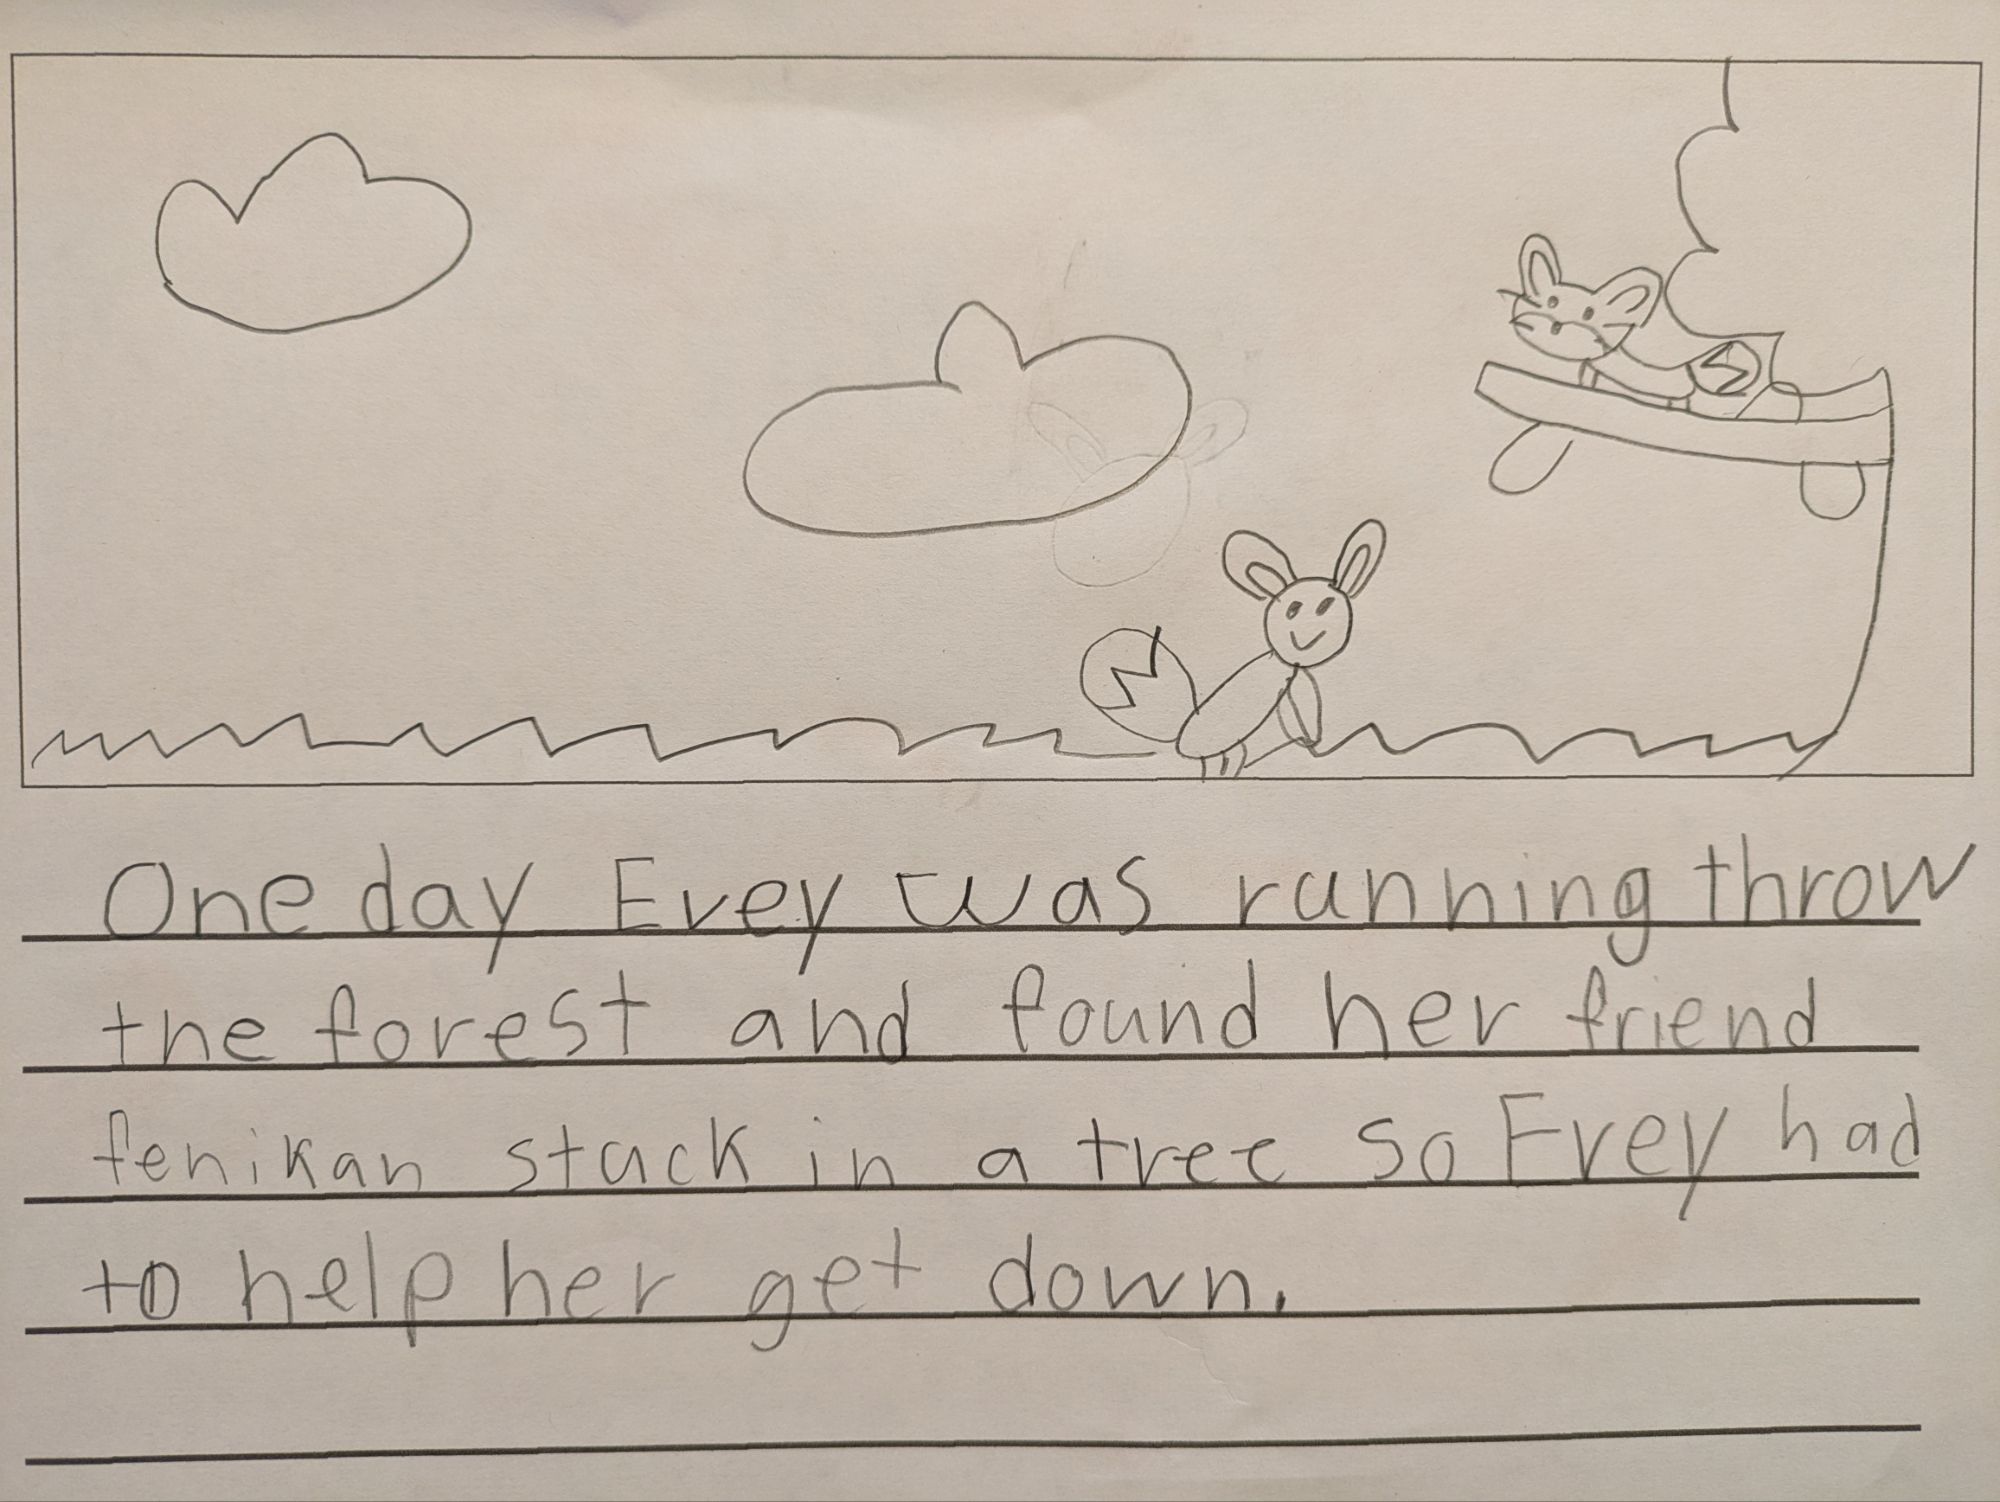 One day Evey was running throw
the forest and found her friend
fenikan stuck in a tree so Evey had
to help her get down.